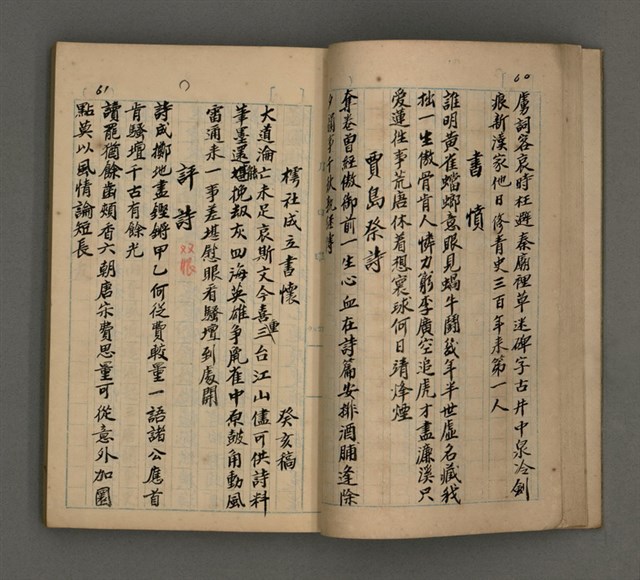 60
虜詞客哀時枉避秦廟裡草迷碑字古井中泉冷劍
痕新漢家他日修青史三百年來第一人
書憤
誰明黃雀蟷螂意眼見蝸牛鬪幾年半世虛名藏我
拙一生傲骨肯人憐力窮李廣空追虎才盡濂溪只
愛蓮往事荒唐休着想寰球何日靖烽煙
賈島祭詩
奪卷曾經傲御前一生心血在詩篇安排酒脯逢除
61
樗社成立書懷 癸亥稿
大道淪亡未足哀斯文今喜三臺江山儘可供詩料
重
筆墨還能挽劫灰四海英雄爭鳳雀中原鼓角動風
雷通來一事差堪慰眼看騷壇到處開
評詩 双眼
詩成擲地盡鏗鏘甲乙何從費較量一語諸公應首
肯騷壇千古有餘光
讀罷猶餘齒頰香六朝唐宋費思量可從意外加圈
點莫以風情論短長